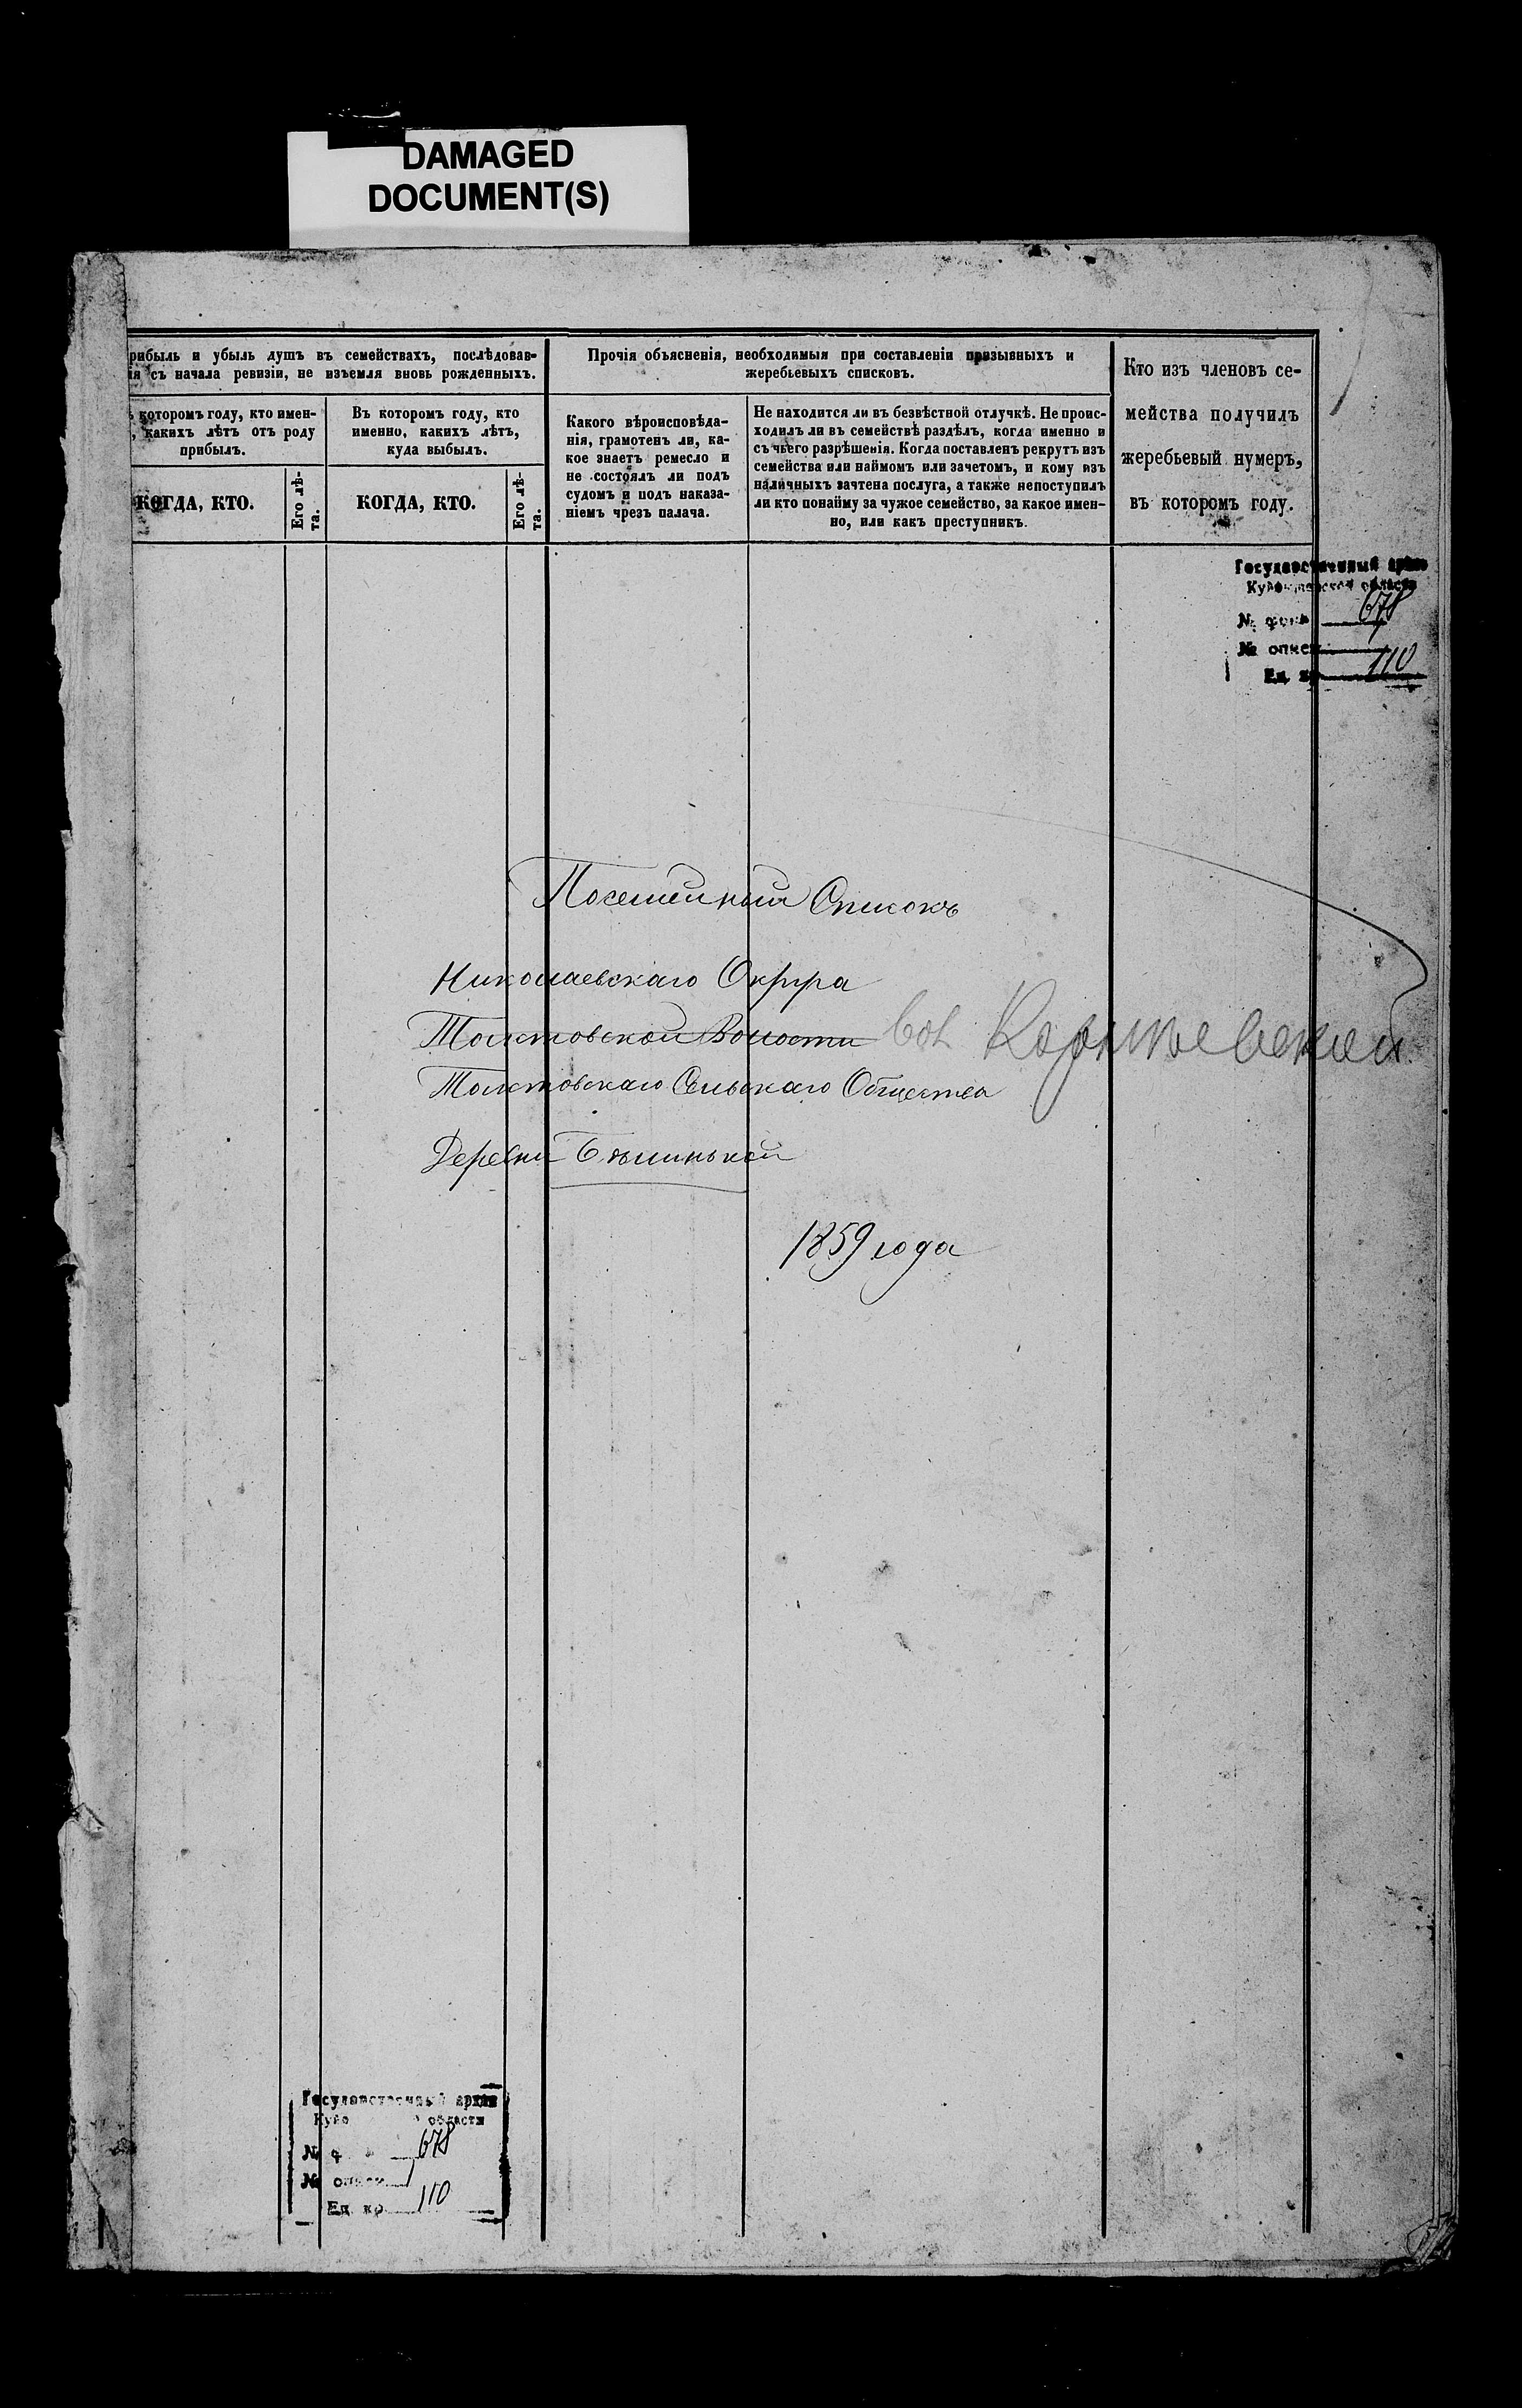 DAMAGED
DOCUMENT(S)
рибыль и убыль душъ въ семействахъ, послѣдовав-
ія съ начала ревизіи, не изъемля вновь рожденныхъ.
ъ которомъ году, кто имен-
, какихъ лѣтъ отъ роду
прибылъ.
КОГДА, КТО.
Его лѣ-
та.
Въ которомъ году, кто
именно, какихъ лѣтъ,
куда выбылъ.
КОГДА, КТО.
Его лѣ-
та.
Прочія объясненія, необходимыя при составленіи призывныхъ и
жеребьевыхъ списковъ.
Какого вѣроисповѣда-
нія, грамотенъ ли, ка-
кое знаетъ ремесло и
не состоялъ ли подъ
судомъ и подъ наказа-
ніемъ чрезъ палача.
Не находится ли въ безвѣстной отлучкѣ. Не проис-
ходилъ ли въ семействѣ раздѣлъ, когда именно и
съ чьего разрѣшенія. Когда поставленъ рекрутъ изъ
семейства или наймомъ или зачетомъ, и кому изъ
наличныхъ зачтена послуга, а также непоступилъ
ли кто понайму за чужое семейство, за какое имен-
но, или какъ преступникъ.
Кто изъ членовъ се-
мейства получилъ
жеребьевый нумеръ,
въ которомъ году.
Государственный архив
Куйбышевской области
№ фонд 678
№ описи 1
Ед. хр 110
Посемейный Списокъ
Николаевскаго Округа
Толстовской Волости вол
Толстовскаго Сельскаго Общества
Деревни
1859 года
Государственный архив
области
№ ф 678
№ описи 1
Ед. хр. 110